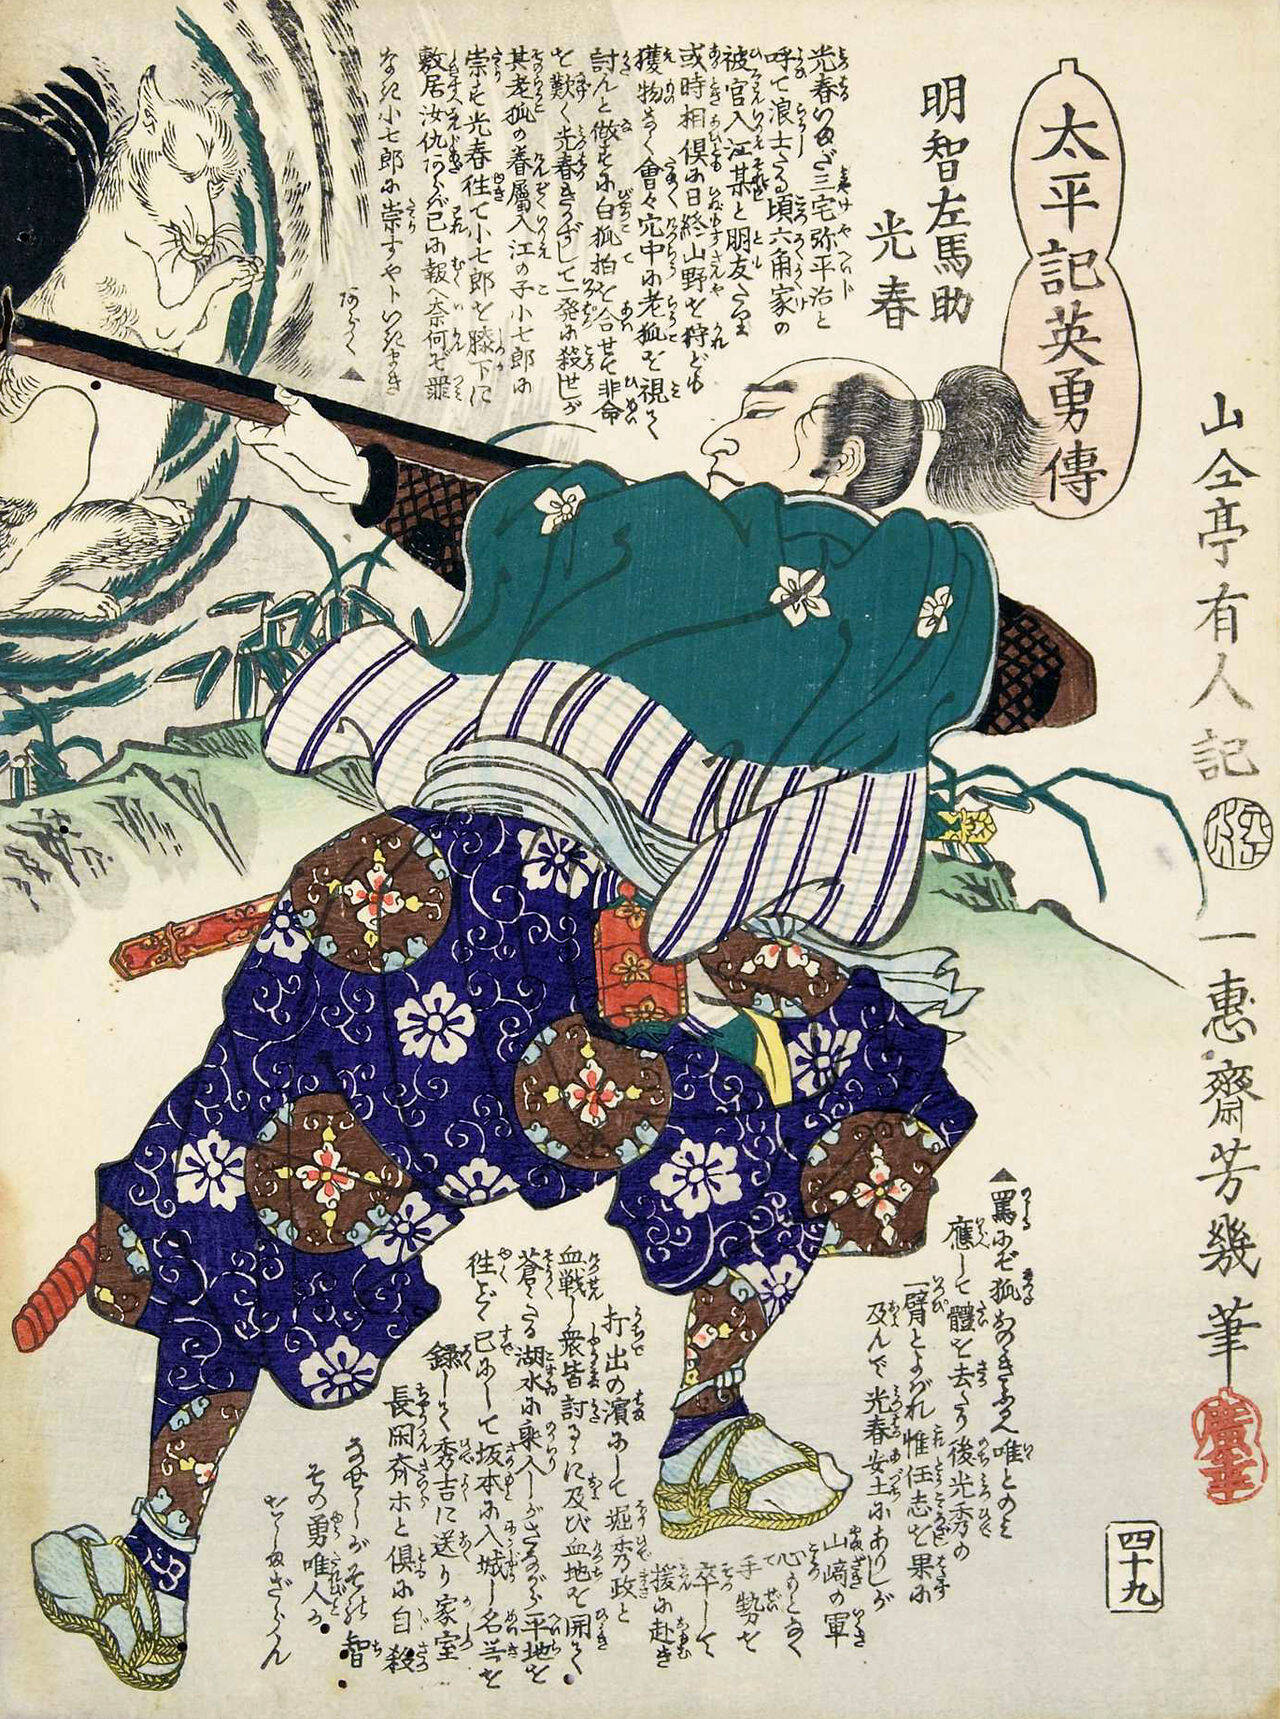 太平記英勇傳
明智左馬助
光春
光春いまだ三宅弥平治と
呼て浪士たる頃六角家の
被官入江某と朋友たり
或時相倶に日終山野を狩ども
獲物なく會々穴中に老狐を視て
討んと做すに白狐拍を合せて非命
を歎く光春きかずして一発に殺せしが
其老狐の眷屬入江の子小七郎に
崇も光春往て小七郎を膝下に
敷居汝仇あらば已に報へ奈何ぞ罪
なき小七郎に崇すやトいきまき
あらく▲
▲罵にぞ狐
應して體を去たり後光秀の
一臂とよばれ惟任志を果に
及んで光春安土にありしが
山﨑の軍
心もとなく
手勢を
卒して
援に赴き
打出の濱にして堀秀政と
血戦し衆皆討るゝに及び血地を開て
蒼々たる湖水に乘入しがさながら平地を
往どく已にして坂本に入城し名器を
録して秀吉に送り家室
長閑斎ホと倶に自殺
なせしがその智
その勇唯人に
あらざらん
山仝亭有人記
一惠齋芳幾筆
廣幸
四十九